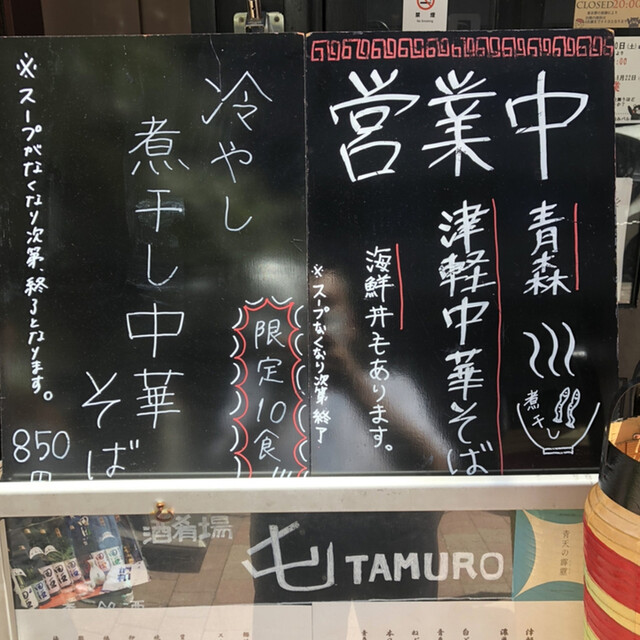 営業中
青森
津軽中華そば
煮干し
海鮮丼もあります。
※スープなくなり次第終了
冷やし
煮干し中華
そば
限定10食!!!
※スープがなくなり次第、終了となります。
850
円
酒肴場
屯 TAMURO
青天の霹靂
禁煙
CLOSED20:00